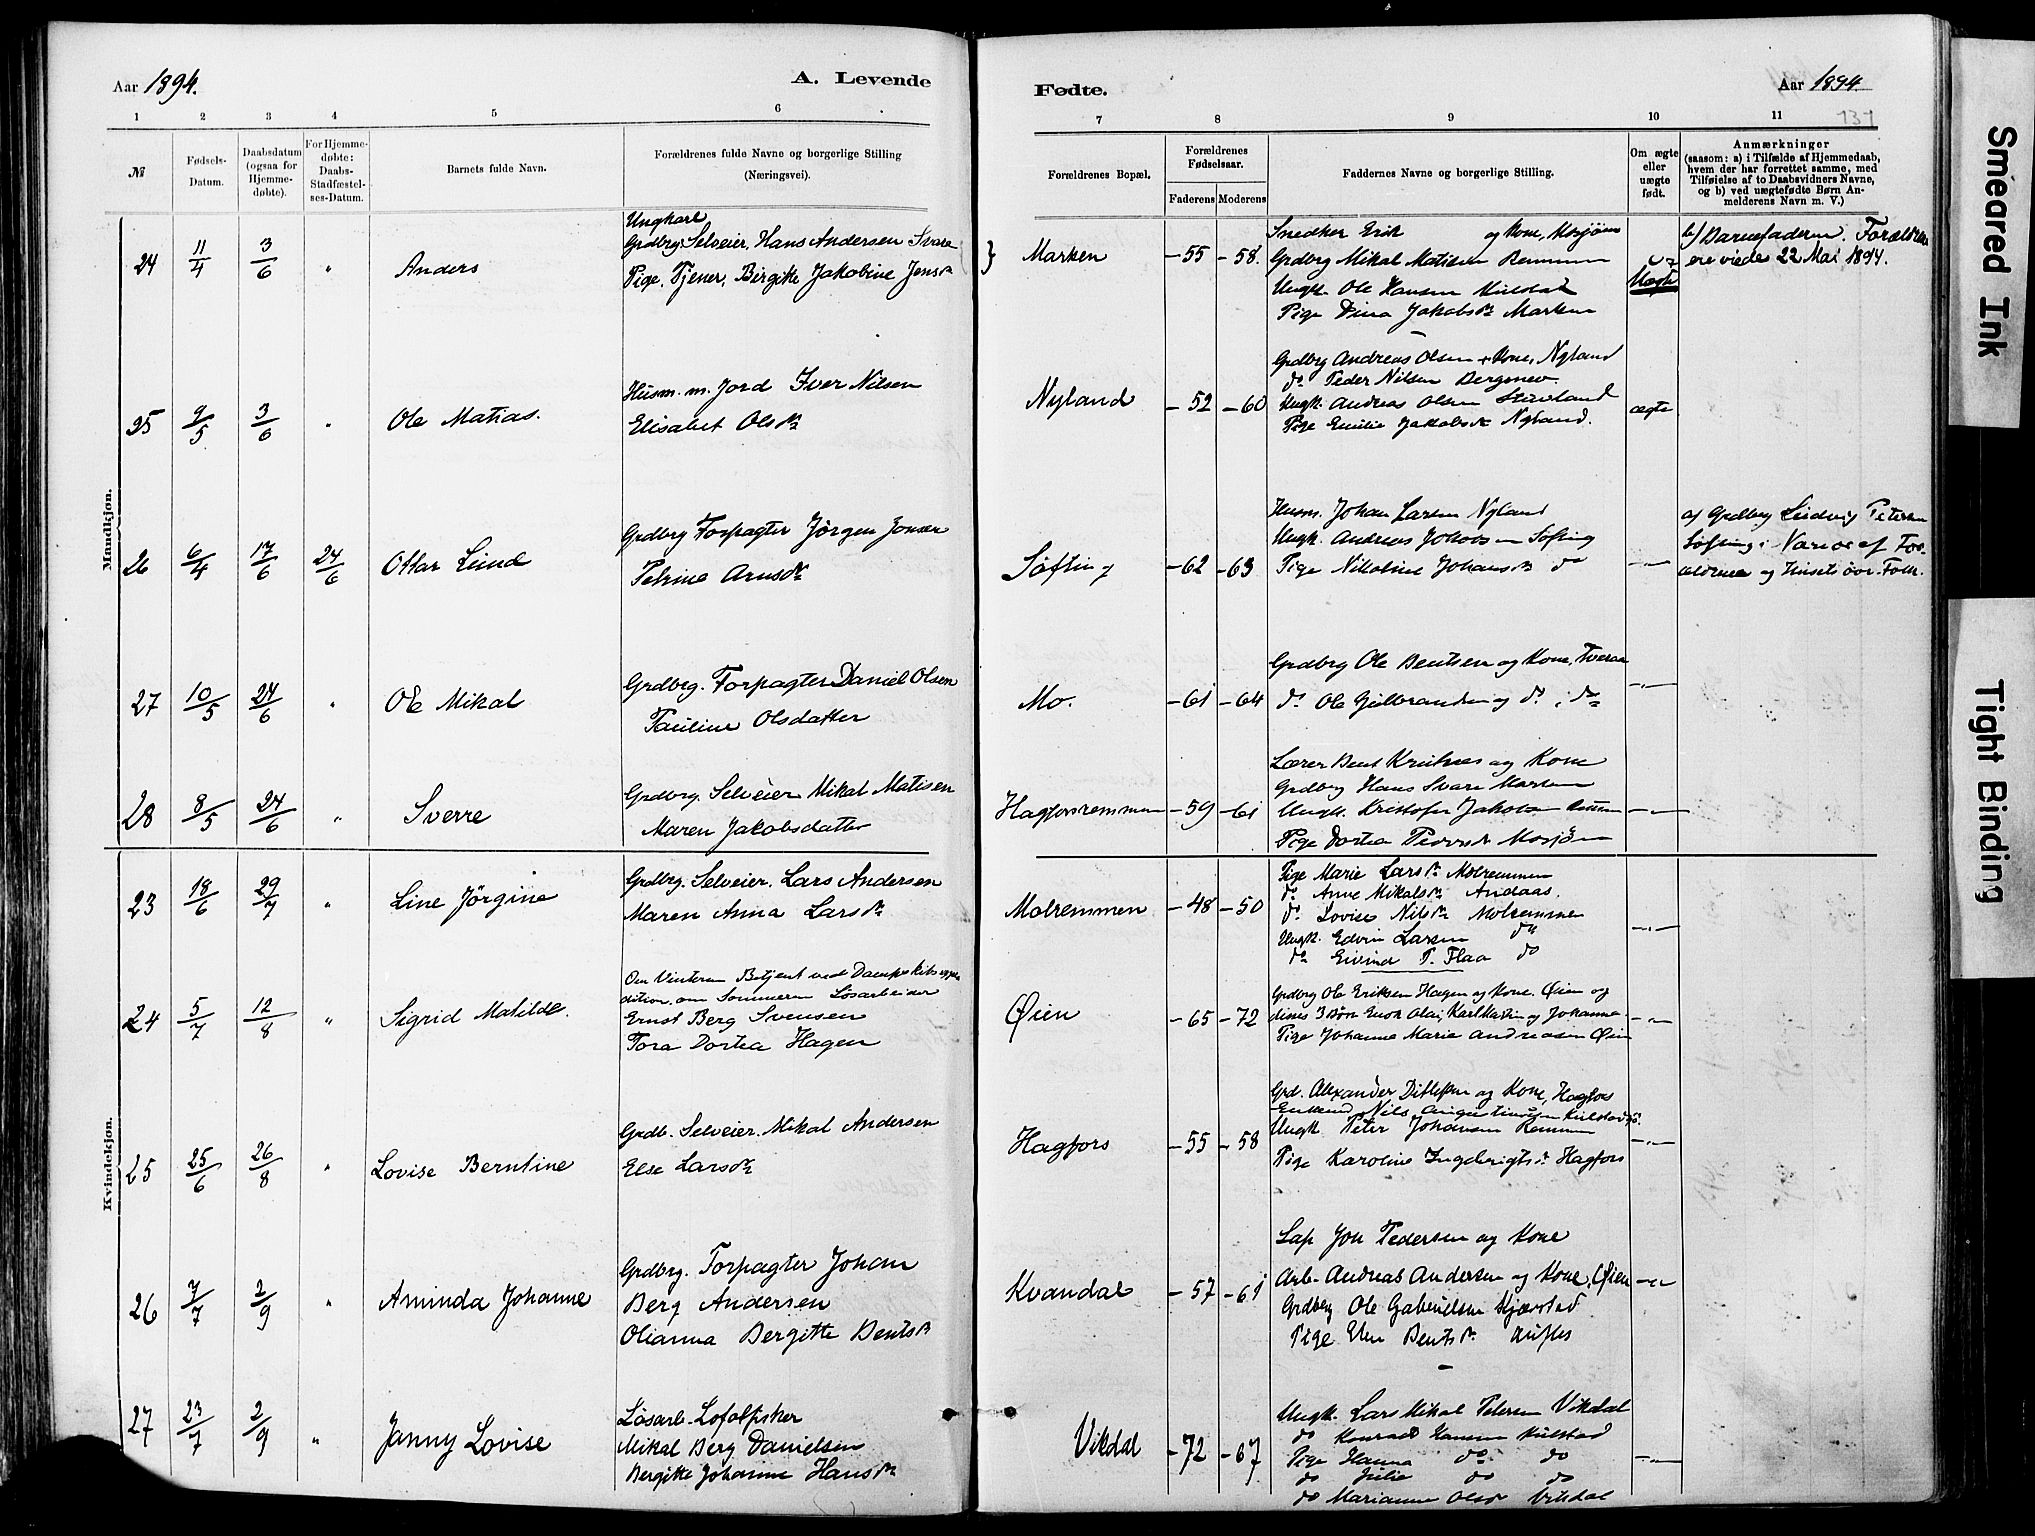 Aar 1894.
A. Levende
1 2 3 4 5 6
№
Fødsels-
Datum.
Daabsdatum
(ogsaa for
Hjemme-
døbte).
For Hjemme-
døbte:
Daabs-
Stadfæstel-
ses-Datum.
Barnets fulde Navn.
Forældrenes fulde Navne og borgerlige Stilling
(Næringsvei).
Mandkjøn.
Ungkarl
24 11/4 3/6 " Anders
Grdbrg. Selveier, Hans Andersen Svare
Pige, Tjener, Birgitte Jakobine Jensdr
25 9/5 3/6 " Ole Matias.
Husm. m. Jord Iver Nilsen
Elisabet Olsdr
26 6/4 17/6 24/6 Ottar Lund
Grdbrg Forpagter Jørgen
Petrine Arnsdr
27 10/5 24/6 " Ole Mikal
Grdbrg. Forpagter Daniel Olsen
Pauline Olsdatter
28 8/5 24/6 " Sverre
Grdbrg. Selveier Mikal Matisen
Maren Jakobsdatter
Kvindekjøn.
23 18/6 29/7 " Line Jørgine
Grdbrg. Selveier. Lars Andersen
Maren Anna Larsdr
24 5/7 12/8 " Sigrid Matilde.
Om Vinteren Betjent ved Dampskibsexpe-
dition, om Sommeren Løsarbeider
Ernst Berg Svensen
Tora Dortea Hagen
25 25/6 26/8 " Lovise Berntine
Grdb. Selveier. Mikal Andersen
Else Larsdr
26 7/7 2/9 " Aminda Johanne
Grdbrg. Forpagter Johan
Berg Andersen
Olianna Bergitte Bentsdr
27 23/7 2/9 " Janny Lovise
Løsarb. Lofotfisker
Mikal Berg Danielsen
Bergitte Johanne Hansdr
Fødte.
Aar 1894.
131
7 8 9 10 11
Forældrenes Bopæl.
Forældrenes
Fødselsaar.
Faderens Moderens
Faddernes Navne og borgerlige Stilling.
Om ægte
eller
uægte
født.
Anmærkninger
(saasom: a) i Tilfælde af Hjemmedaab,
hvem der har forrettet samme, med
Tilføielse af to Daabsvidners Navne,
og b) ved uægtefødte Børn An-
melderens Navn m. V.)
} Marken -55 -58.
Snedker Erik og Kone, Mosjøen
Grdbrg Mikal Matisen Remmen
Ungk. Ole Hansen Kulstad
Pige Dina Jakobsdr Marken
Uægte
b) Barnefaderen. Forældrene
ere viede 22 Mai 1894.
Nyland -52 -60
Grdbrg Andreas Olsen + Kone, Nyland
do Peder Nilsen
Ungk. Andreas Olsen
Pige Emilie Jakobsdr Nyland.
ægte
Søfting -62 -63
Husm. Johan Larsen Nyland
Ungk. Andreas Johansen Søfting
Pige Nikoline Johansdr do
-"-
a) Grdbrg Ludvig Petersen
Søfting i Nærvær af For-
ældrene og Husets øvr. Folk.
Mo. -61 -64
Grdbrg Ole Bentsen og Kone, Tveraa
do Ole Gulbrandsen og do, do
-"-
Hagforsremmen -59 -61
Lærer Bent og Kone
Grdbrg Hans Svare Marken
Ungk. Kristofer Jakobsen
Pige Dortea Pedersdr Mosjøen
-"-
Molremmen -48 -50
Pige Marie Larsdr Molremmen
do Anne Mikalsdr Andaas.
do Lovise Nilsdr Molremmen
Ungk. Edvin Larsen do
do Eivind P. Flaa do
-"-
Øien -65 -72
Grdbrg Ole Eriksen Hagen og Kone. Øien og
disses 3 Børn Enok Olai, Karl Martin og Johanna
Pige Johanna Marie Andreasen Øien
-"-
Hagfors -55 -58
Grd. Alexander Ditlefsen og Kone, Hagfors
Enkemd Nils Augustinusen Kulstadsjø.
Ungk Peter Johansen Remmen
Pige Karoline Ingebrigtsdr Hagfors
-"-
Kvandal -57 -61
Lap Jon Pedersen og Kone
Arb- Andreas Andersen og Kone, Øien
Grdbrg Ole Gabrielsen Kjærstad
Pige Elen Bentsdr
-"-
Vikdal -72 -67
Ungk. Lars Mikal Petersen Vikdal
do Konrad Hansen Kulstad
Pige Hanna do do
do Julie do do
do Marianne Olsdr Vikdal
-"-
Smeared Ink
Tight Binding